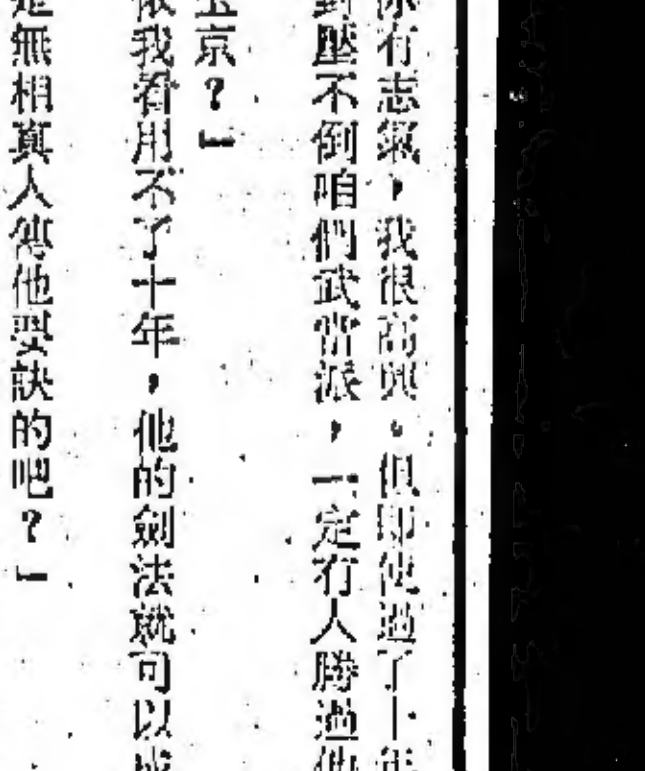 你有志氣，我很高興。但即使過了十年
對壓不倒咱們武當派，一定有人勝過他
玉京？」
依我看用不了十年，他的劍法就可以成
是無相真人傳他要訣的吧？」